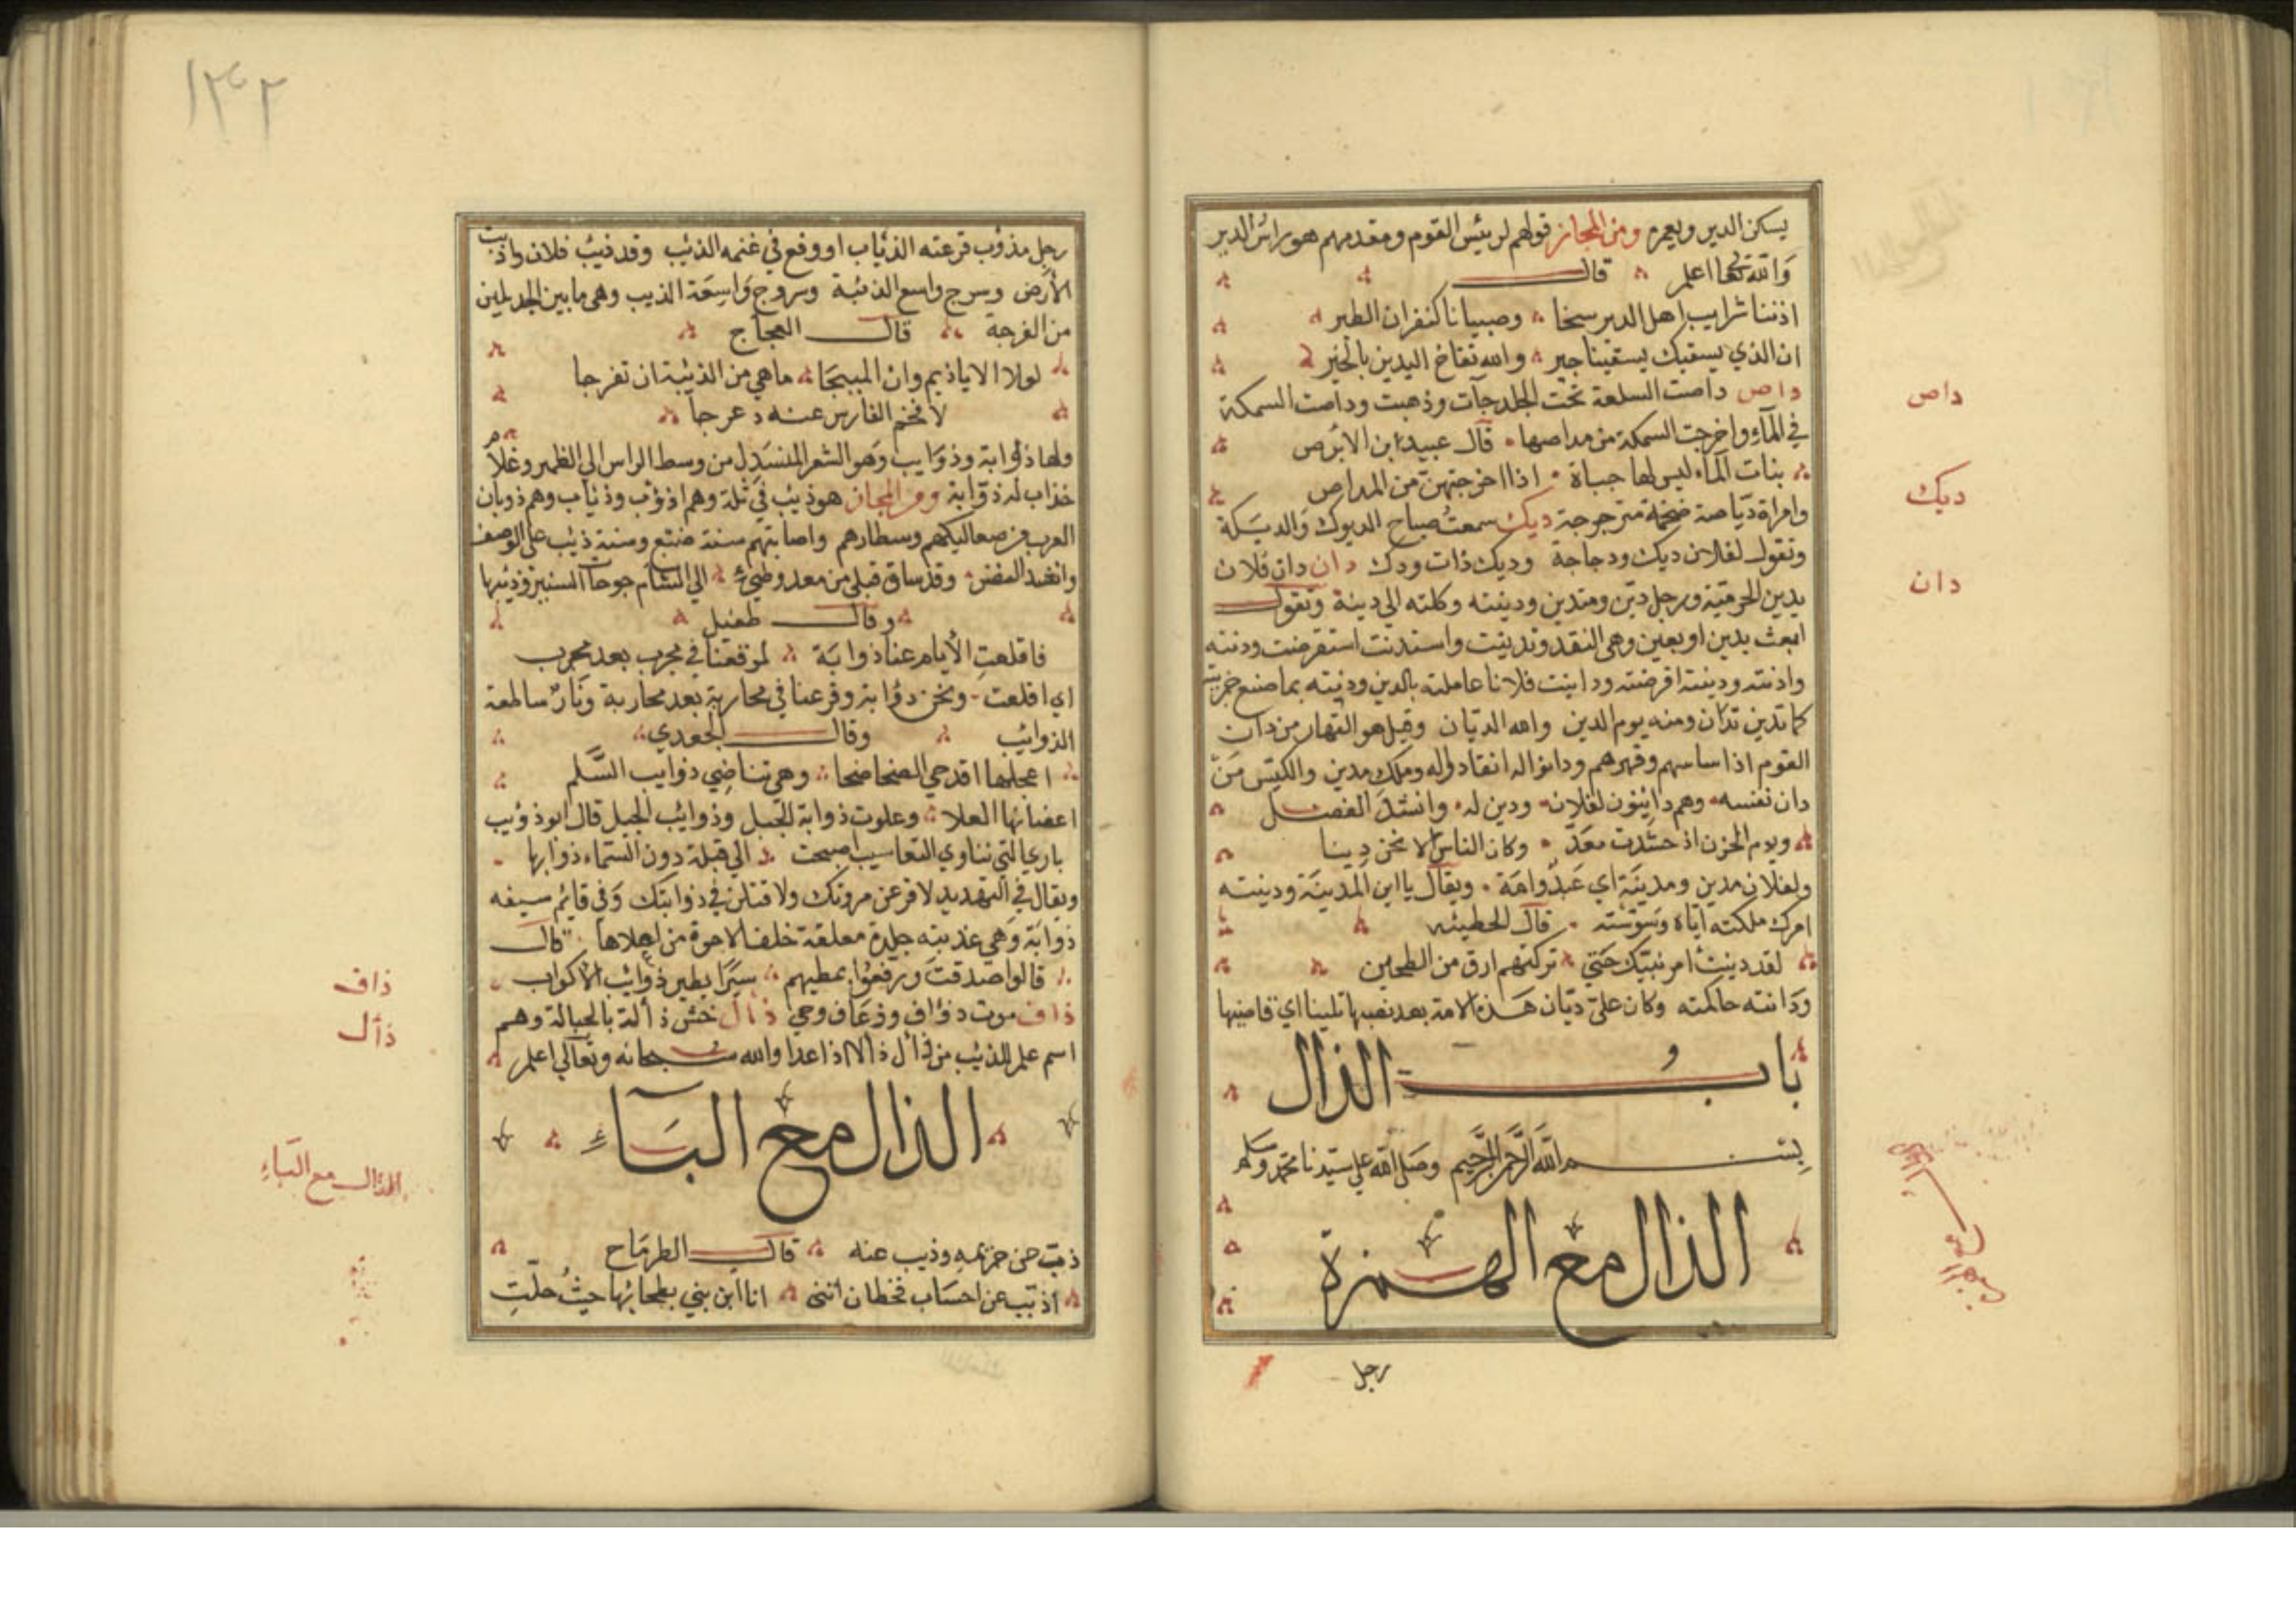 يسكن الدير ويعمره ومن المجاز قولهم لرئيس القوم ومقدمهم هو راس الدير
والله تعالى اعلم قال
اذننا شرايب اهل الدير سخا وصبيانا كنفران الطير
ان الذي يسقيك يسقينا جير والله نفاخ اليدين بالخير
داص داصت السلعة تحت الجلد جآت وذهبت وداصت السمكة
في المآء واخرجت السمكة من مداصها قال عبيد ابن الابرص
بنات المآء ليس لها حباة اذا اخرجتهن من المداص
وامراة دياصة ضخمة مترجرجة ديك سمعت صياح الديوك والديكة
وتقول لفلان ديك ودجاجة وديك ذات ودك دان دان فلان
يدين الحرمية ورجل دين ومتدين ودينته وكلته الى دينه وتقول
ابعث بدين او بعين وهي النقد وتدينت واستدنت استقرضت ودنته
وادنته ودينته اقرضته وداينت فلانا عاملته بالدين ودنيته بما صنع جزيته
كما تدين تدان ومنه يوم الدين والله الديان وقيل هو القهار من دان
القوم اذا ساسهم وقهرهم ودانوا له انقادوا له وملك مدين والكيس من
دان نفسه وهم دائنون لفلان ودين له وانشد الفضل
ويوم الحزن اذ حشدت معد وكان الناس الا نحن دينا
ولفلان مدين ومدينة اي عبد وامة ويقال يا ابن المدينة ودينته
امرك ملكته اياه وسوسته قال الحطيئه
لقد دينت امر بنيك حتي تركتهم ارق من الطحين
ودانته حاكمته وكان علي ديان هذه الامة بعد نبيها تلينا اي قاضيها
باب الذال
بسم الله الرحمن الرحيم وصلى الله علي سيدنا محمد وسلم
الذال مع الهمزة
رجل
داص
ديك
دان
١٣٢
رجل مذؤب قرعته الذئاب او وقع في غنمه الذئب وقد ذئب فلان واذيت
الارض وسرج واسع الذئبة وسروج واسعة الذيب وهي ما بين الجديلين
من الفرجة قال العجاج
لولا الاياذيم وان المبيجا ما هي من الذئبة ان تفرجا
لاقحم الفارس عنه دعرجا
ولها ذؤابة وذوايب وهو الشعر المنسدل من وسط الراس الى الظهر وغلا
خذاب له ذؤابة ومن المجاز هو ذيب في ثلة وهم اذؤب وذئاب وهم ذوبان
العرب من صعاليكهم وسطارهم واصابتهم سنة ضبع وسنة ذئب علي الوصف
وانشد المفضل وقد ساق قبلي من معد وطيئ الي الشام جوحات السنين وذيبها
وقال طفيل
فاقلعت الايام عنا ذوابة لموقعنا في محرب بعد محرب
اي اقلعت ونحن ذؤابة وفرعنا في محاربة بعد محاربة ونار ساطعة
الذوائب وقال الجعدي
اعجلها اقدحي الضحا ضحا وهي تناضي ذوايب السلم
اعضائها العلا وعلوت ذوابة الجبل وذوائب الجبل قال ابو ذؤيب
باري التي تناوي التعاسيب اصبحت الي قبلة دون السماء ذوابها
ويقال في التهديد لا فرعن مروتك ولا قتلن في ذوابتك وفي قائم سيفه
ذوابة وهي عذبته جلدة معلقة خلف الاخرة من اعلاها قال
قالوا صدقت ورفعوا بمطيهم سيرا يطير ذوائب الاكوار
ذاف موت ذؤاف وذعاف وحي ذأل خش ذالة بالحبالة وهم
اسم علم للذئب من ذأل ذالا اذا عدا والله سبحانه وتعالى اعلم
الذال مع الباء
ذب عن حريمه وذيب عنه قال الطرماح
اذبب عن احساب قحطان انني انا ابن بني بطحائها حيث حلت
ذاف
ذأل
الذال مع الباء